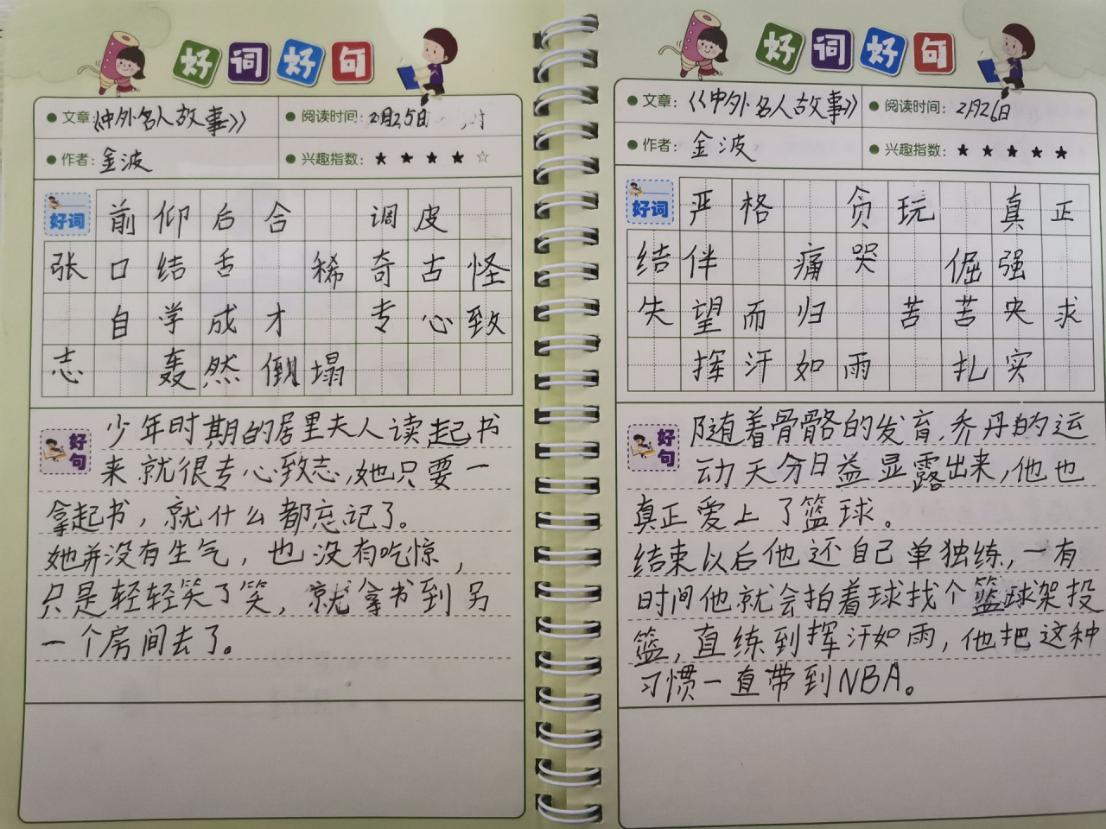 好词好句
文章:《中外名人故事》
阅读时间:2月25日
作者:金波
兴趣指数:★★★★☆
好词
前仰后合 调皮
张口结舌 稀奇古怪
自学成才 专心致
志 轰然倒塌
好句
少年时期的居里夫人读起书
来就很专心致志,她只要一
拿起书,就什么都忘记了。
她并没有生气,也没有吃惊,
只是轻轻笑了笑,就拿书到另
一个房间去了。
好词好句
文章:《中外名人故事》
阅读时间:2月26日
作者:金波
兴趣指数:★★★★★
好词
严格 贪玩 真正
结伴 痛哭 倔强
失望而归 苦苦央求
挥汗如雨 扎实
好句
随着骨骼的发育,乔丹的运
动天分日益显露出来,他也
真正爱上了篮球。
结束以后他还自己单独练,一有
时间他就会拍着球找个篮球架投
篮,直练到挥汗如雨,他把这种
习惯一直带到NBA。